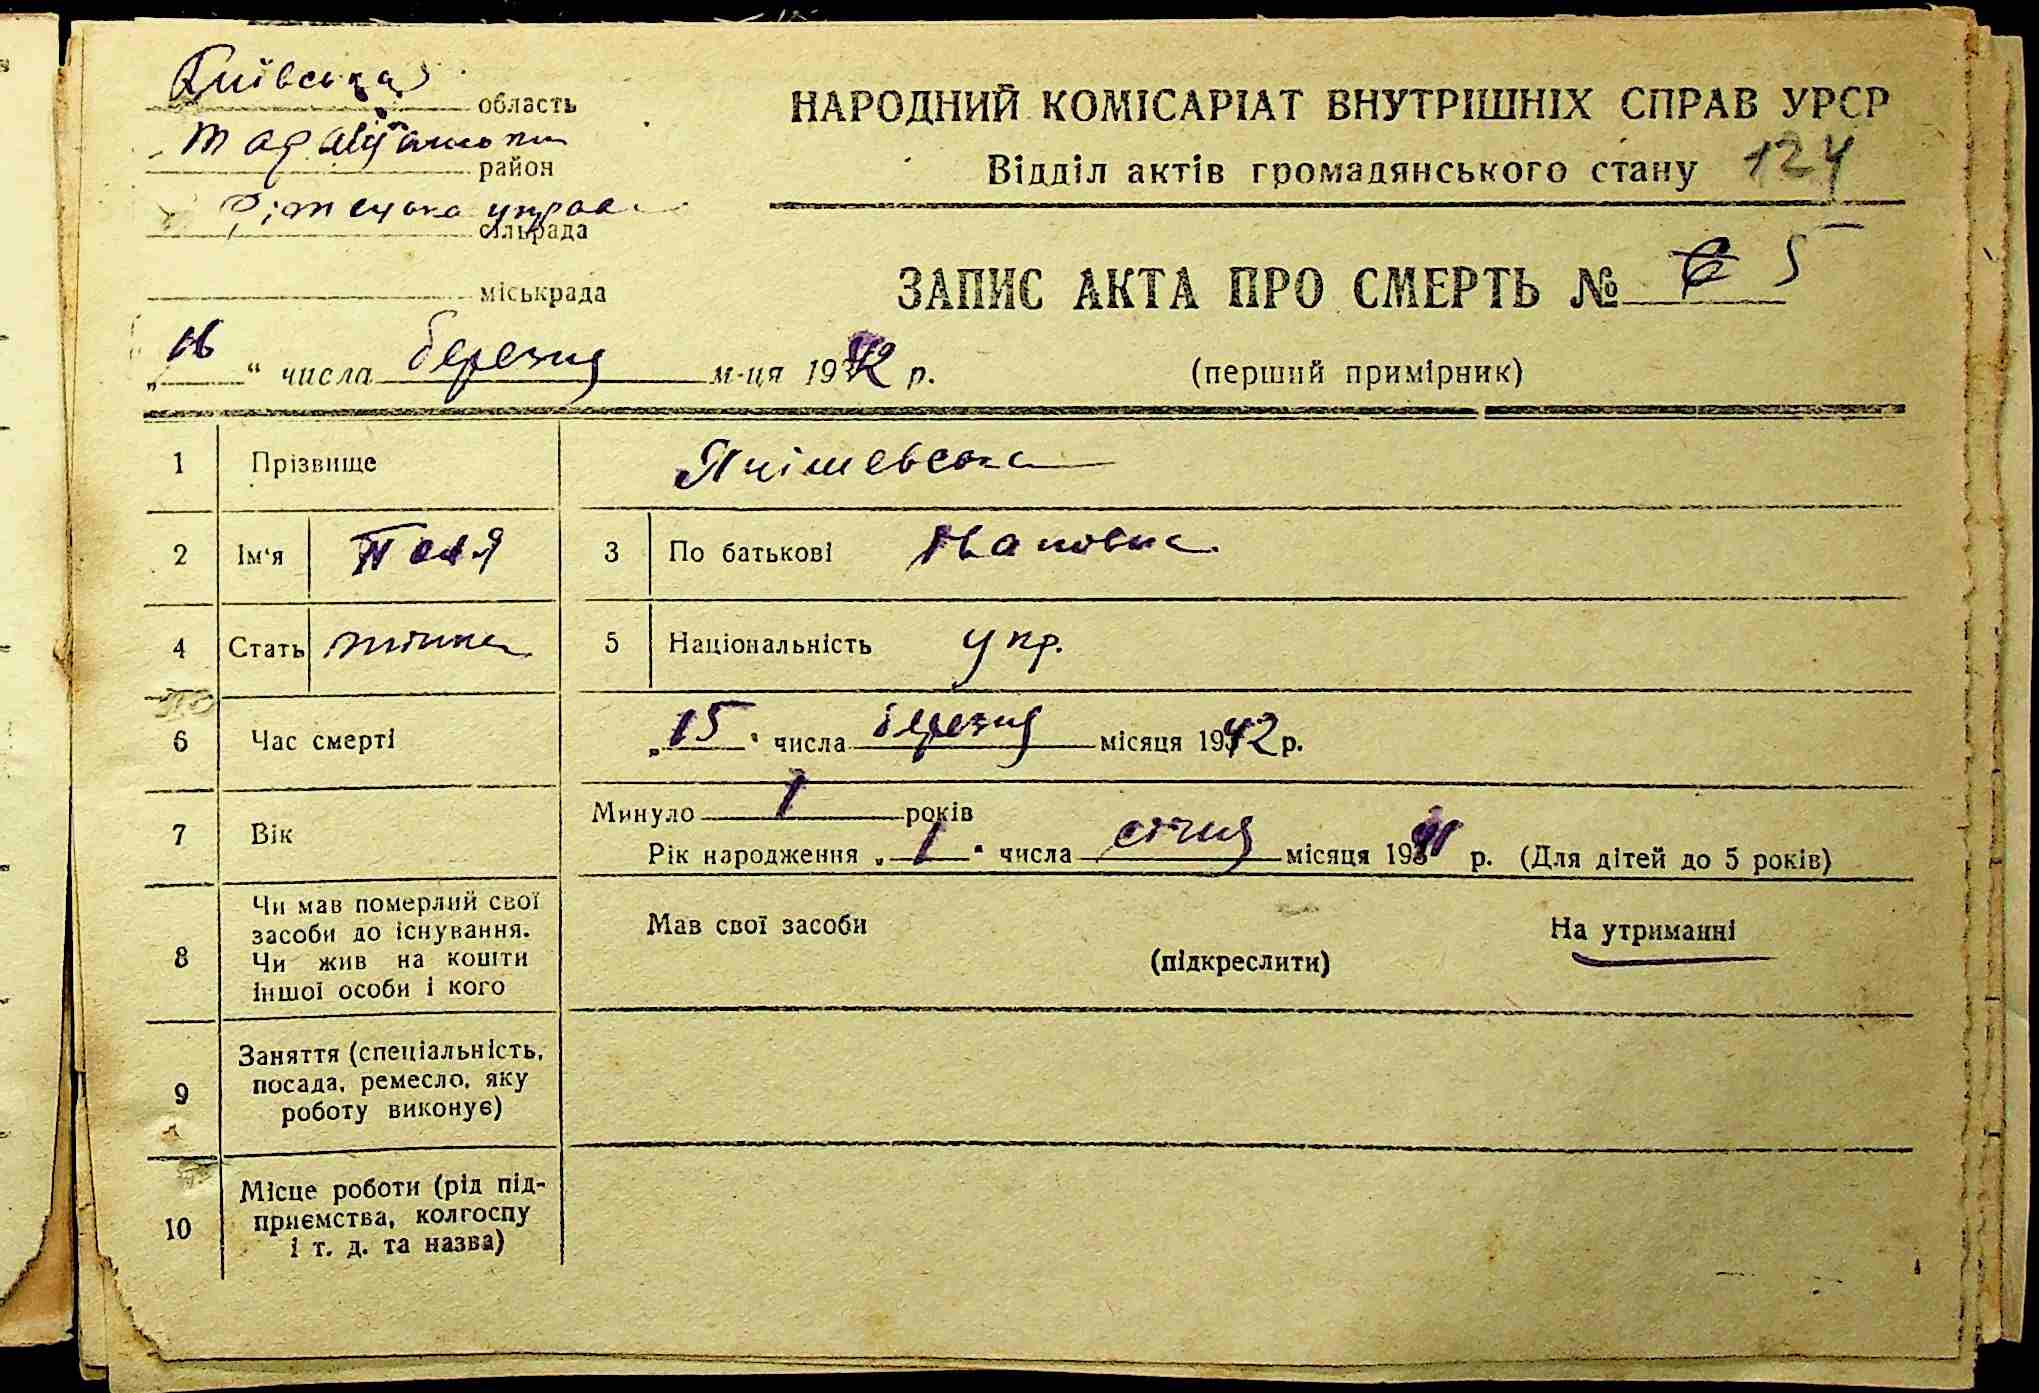 Київська область
НАРОДНИЙ КОМІСАРІАТ ВНУТРІШНІХ СПРАВ УРСР
Таращанський район
Відділ актів громадянського стану 124
управа сільрада
міськрада
ЗАПИС АКТА ПРО СМЕРТЬ № 5
„16“ числа березня м-ця 1942 р.
(перший примірник)
1 Прізвище Янішевська
2 Ім'я Поля 3 По батькові Івановна
4 Стать жіноча 5 Національність укр.
6 Час смерті „15“ числа березня місяця 1942 р.
7 Вік Минуло 1 років
Рік народження „1“ числа січня місяця 1941 р. (Для дітей до 5 років)
8 Чи мав померлий свої засоби до існування. Чи жив на кошти іншої особи і кого
Мав свої засоби (підкреслити) На утриманні
9 Заняття (спеціальність, посада, ремесло, яку роботу виконує)
10 Місце роботи (рід підприємства, колгоспу і т. д. та назва)